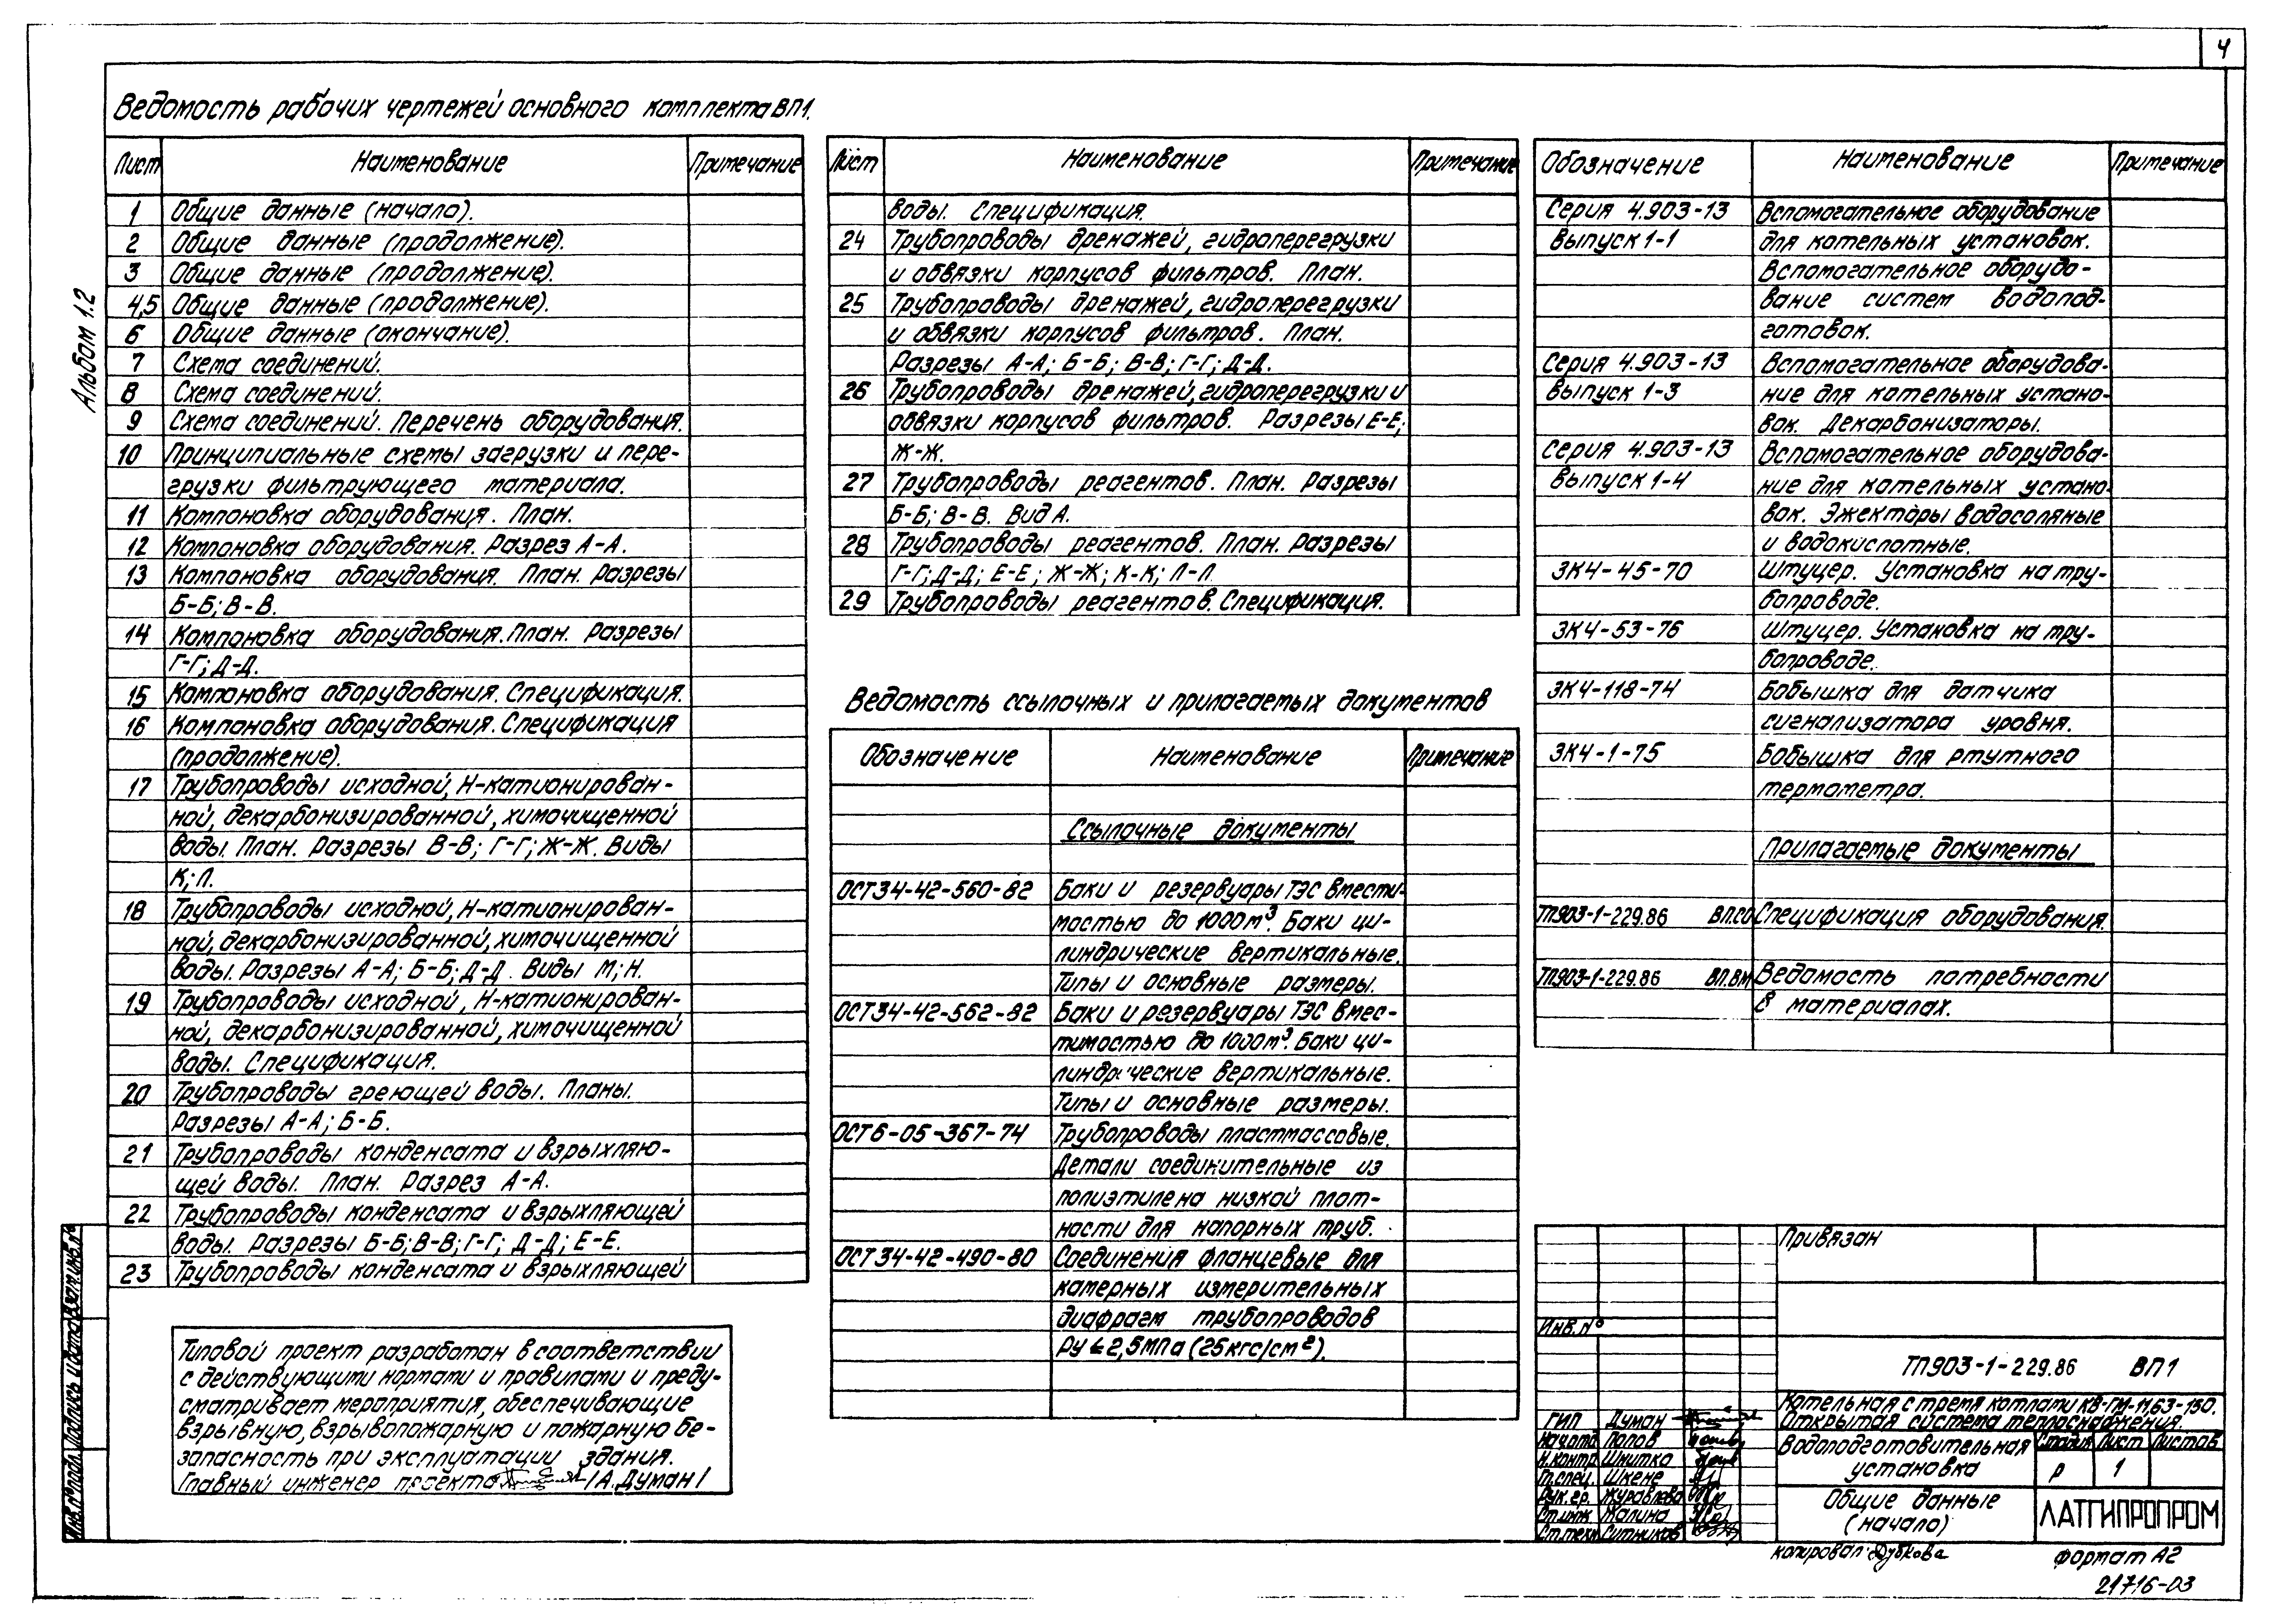 4
Альбом 1.2
Ведомость рабочих чертежей основного комплекта ВП1.
Лист Наименование Примечание
1 Общие данные (начало).
2 Общие данные (продолжение).
3 Общие данные (продолжение).
4,5 Общие данные (продолжение).
6 Общие данные (окончание).
7 Схема соединений.
8 Схема соединений.
9 Схема соединений. Перечень оборудования.
10 Принципиальные схемы загрузки и пере-
грузки фильтрующего материала.
11 Компоновка оборудования. План.
12 Компоновка оборудования. Разрез А-А.
13 Компоновка оборудования. План. Разрезы
Б-Б; В-В.
14 Компоновка оборудования. План. Разрезы
Г-Г; Д-Д.
15 Компоновка оборудования. Спецификация.
16 Компоновка оборудования. Спецификация
(продолжение).
17 Трубопроводы исходной, Н-катионирован-
ной, декарбонизированной, химочищенной
воды. План. Разрезы В-В; Г-Г; Ж-Ж. Виды
К; Л.
18 Трубопроводы исходной, Н-катионирован-
ной, декарбонизированной, химочищенной
воды. Разрезы А-А; Б-Б; Д-Д. Виды М; Н.
19 Трубопроводы исходной, Н-катионирован-
ной, декарбонизированной, химочищенной
воды. Спецификация.
20 Трубопроводы греющей воды. Планы.
Разрезы А-А; Б-Б.
21 Трубопроводы конденсата и взрыхляю-
щей воды. План. Разрез А-А.
22 Трубопроводы конденсата и взрыхляющей
воды. Разрезы Б-Б; В-В; Г-Г; Д-Д; Е-Е.
23 Трубопроводы конденсата и взрыхляющей
Типовой проект разработан в соответствии
с действующими нормами и правилами и преду-
сматривает мероприятия, обеспечивающие
взрывную, взрывопожарную и пожарную бе-
зопасность при эксплуатации здания.
Главный инженер проекта /А. Думан/
Лист Наименование Примечание
воды. Спецификация.
24 Трубопроводы дренажей, гидроперегрузки
и обвязки корпусов фильтров. План.
25 Трубопроводы дренажей, гидроперегрузки
и обвязки корпусов фильтров. План.
Разрезы А-А; Б-Б; В-В; Г-Г; Д-Д.
26 Трубопроводы дренажей, гидроперегрузки и
обвязки корпусов фильтров. Разрезы Е-Е;
Ж-Ж.
27 Трубопроводы реагентов. План. Разрезы
Б-Б; В-В. Вид А.
28 Трубопроводы реагентов. План. Разрезы
Г-Г; Д-Д; Е-Е; Ж-Ж; К-К; Л-Л.
29 Трубопроводы реагентов. Спецификация.
Ведомость ссылочных и прилагаемых документов
Обозначение Наименование Примечание
Ссылочные документы
ОСТ 34-42-560-82 Баки и резервуары ТЭС вмести-
мостью до 1000м³. Баки ци-
линдрические вертикальные.
Типы и основные размеры.
ОСТ 34-42-562-82 Баки и резервуары ТЭС вмес-
тимостью до 1000м³. Баки ци-
линдрические вертикальные.
Типы и основные размеры.
ОСТ 6-05-367-74 Трубопроводы пластмассовые.
Детали соединительные из
полиэтилена низкой плот-
ности для напорных труб.
ОСТ 34-42-490-80 Соединения фланцевые для
камерных измерительных
диафрагм трубопроводов
Ру ≤ 2,5МПа (25кгс/см²).
Обозначение Наименование Примечание
Серия 4.903-13 Вспомогательное оборудование
Выпуск 1-1 для котельных установок.
Вспомогательное оборудо-
вание систем водопод-
готовок.
Серия 4.903-13 Вспомогательное оборудова-
Выпуск 1-3 ние для котельных устано-
вок. Декарбонизаторы.
Серия 4.903-13 Вспомогательное оборудова-
Выпуск 1-4 ние для котельных устано-
вок. Эжекторы водосоляные
и водокислотные.
ЗК4-45-70 Штуцер. Установка на тру-
бопроводе.
ЗК4-53-76 Штуцер. Установка на тру-
бопроводе.
ЗК4-118-74 Бобышка для датчика
сигнализатора уровня.
ЗК4-1-75 Бобышка для ртутного
термометра.
Прилагаемые документы
ТП903-1-229.86 ВП.СО Спецификация оборудования.
ТП903-1-229.86 ВП.ВМ Ведомость потребности
в материалах.
Привязан
Инв.№
ТП903-1-229.86 ВП1
Котельная с тремя котлами КВ-ГМ-11,63-150.
Открытая система теплоснабжения.
ГИП Думан
Нач.отд. Попов
Н.контр. Шнитко
Гл.спец. Шкене
Рук.гр. Журавлева
Ст.инж. Жалина
Ст.техн. Ситников
Водоподготовительная
установка
Стадия Лист Листов
Р 1
Общие данные
(начало)
ЛАТГИПРОПРОМ
Копировал: Дубкова
Формат А2
21716-03
Инв.№ подл. Подпись и дата Взам.инв.№